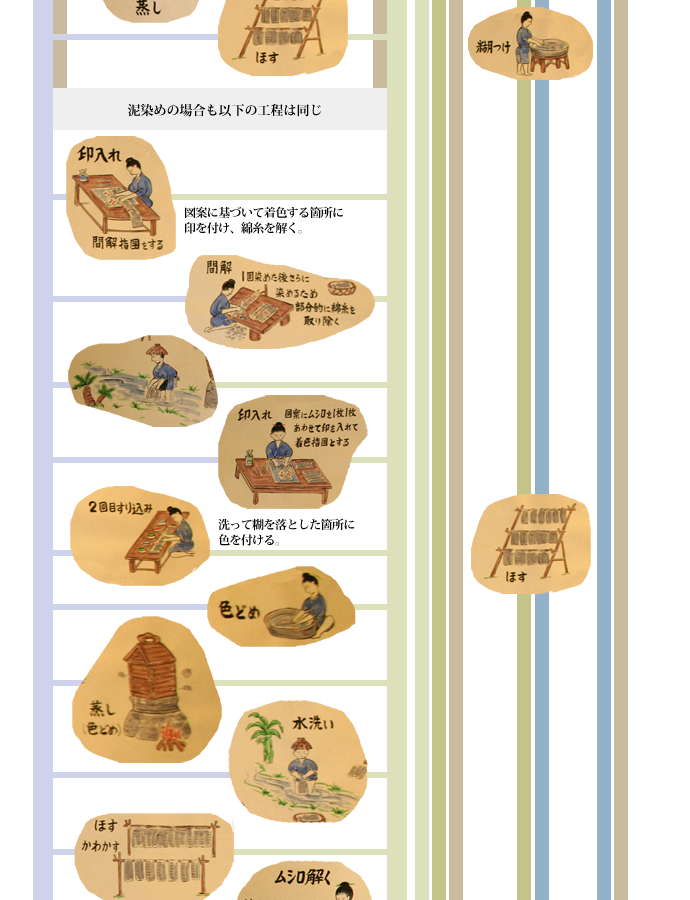 蒸し
ほす
糊つけ
泥染めの場合も以下の工程は同じ
印入れ
間解指図をする
図案に基づいて着色する箇所に
印を付け、綿糸を解く。
間解
1回染めた後さらに
染めるため
部分的に綿糸を
取り除く
印入れ
図案にムシロを1枚1枚
あわせて印を入れて
着色指図とする
2回目すり込み
洗って糊を落とした箇所に
色を付ける。
ほす
色どめ
蒸し
(色どめ)
水洗い
ほす
かわかす
ムシロ解く